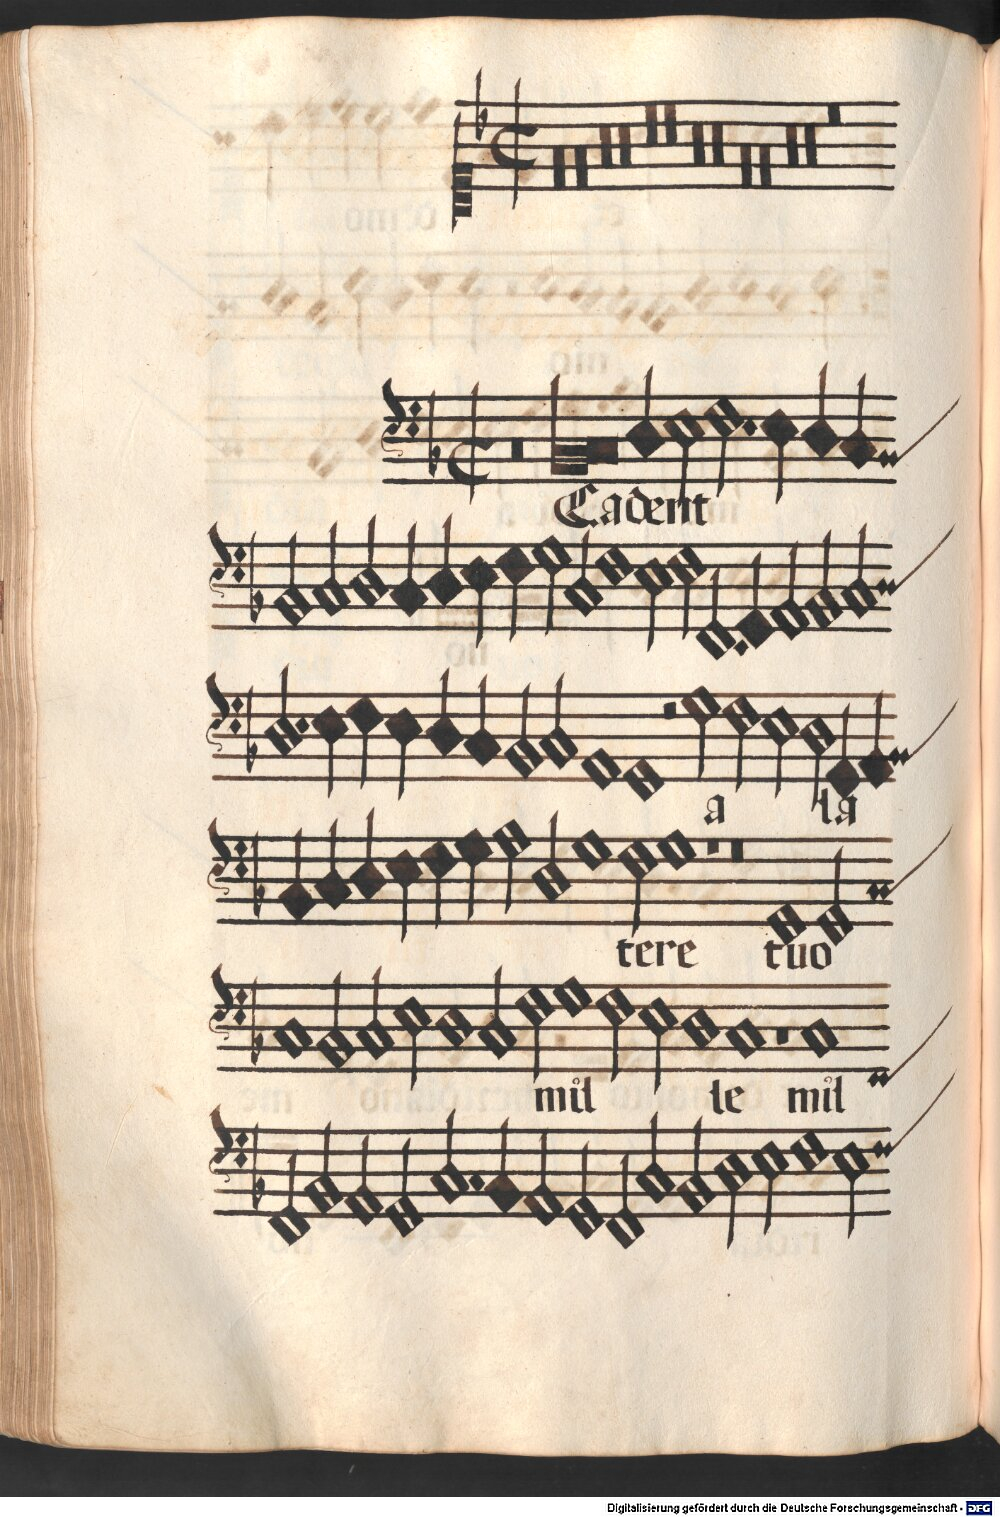 Cadent
a la
tere tuo
mil le mil
Digitalisierung gefördert durch die Deutsche Forschungsgemeinschaft - DFG